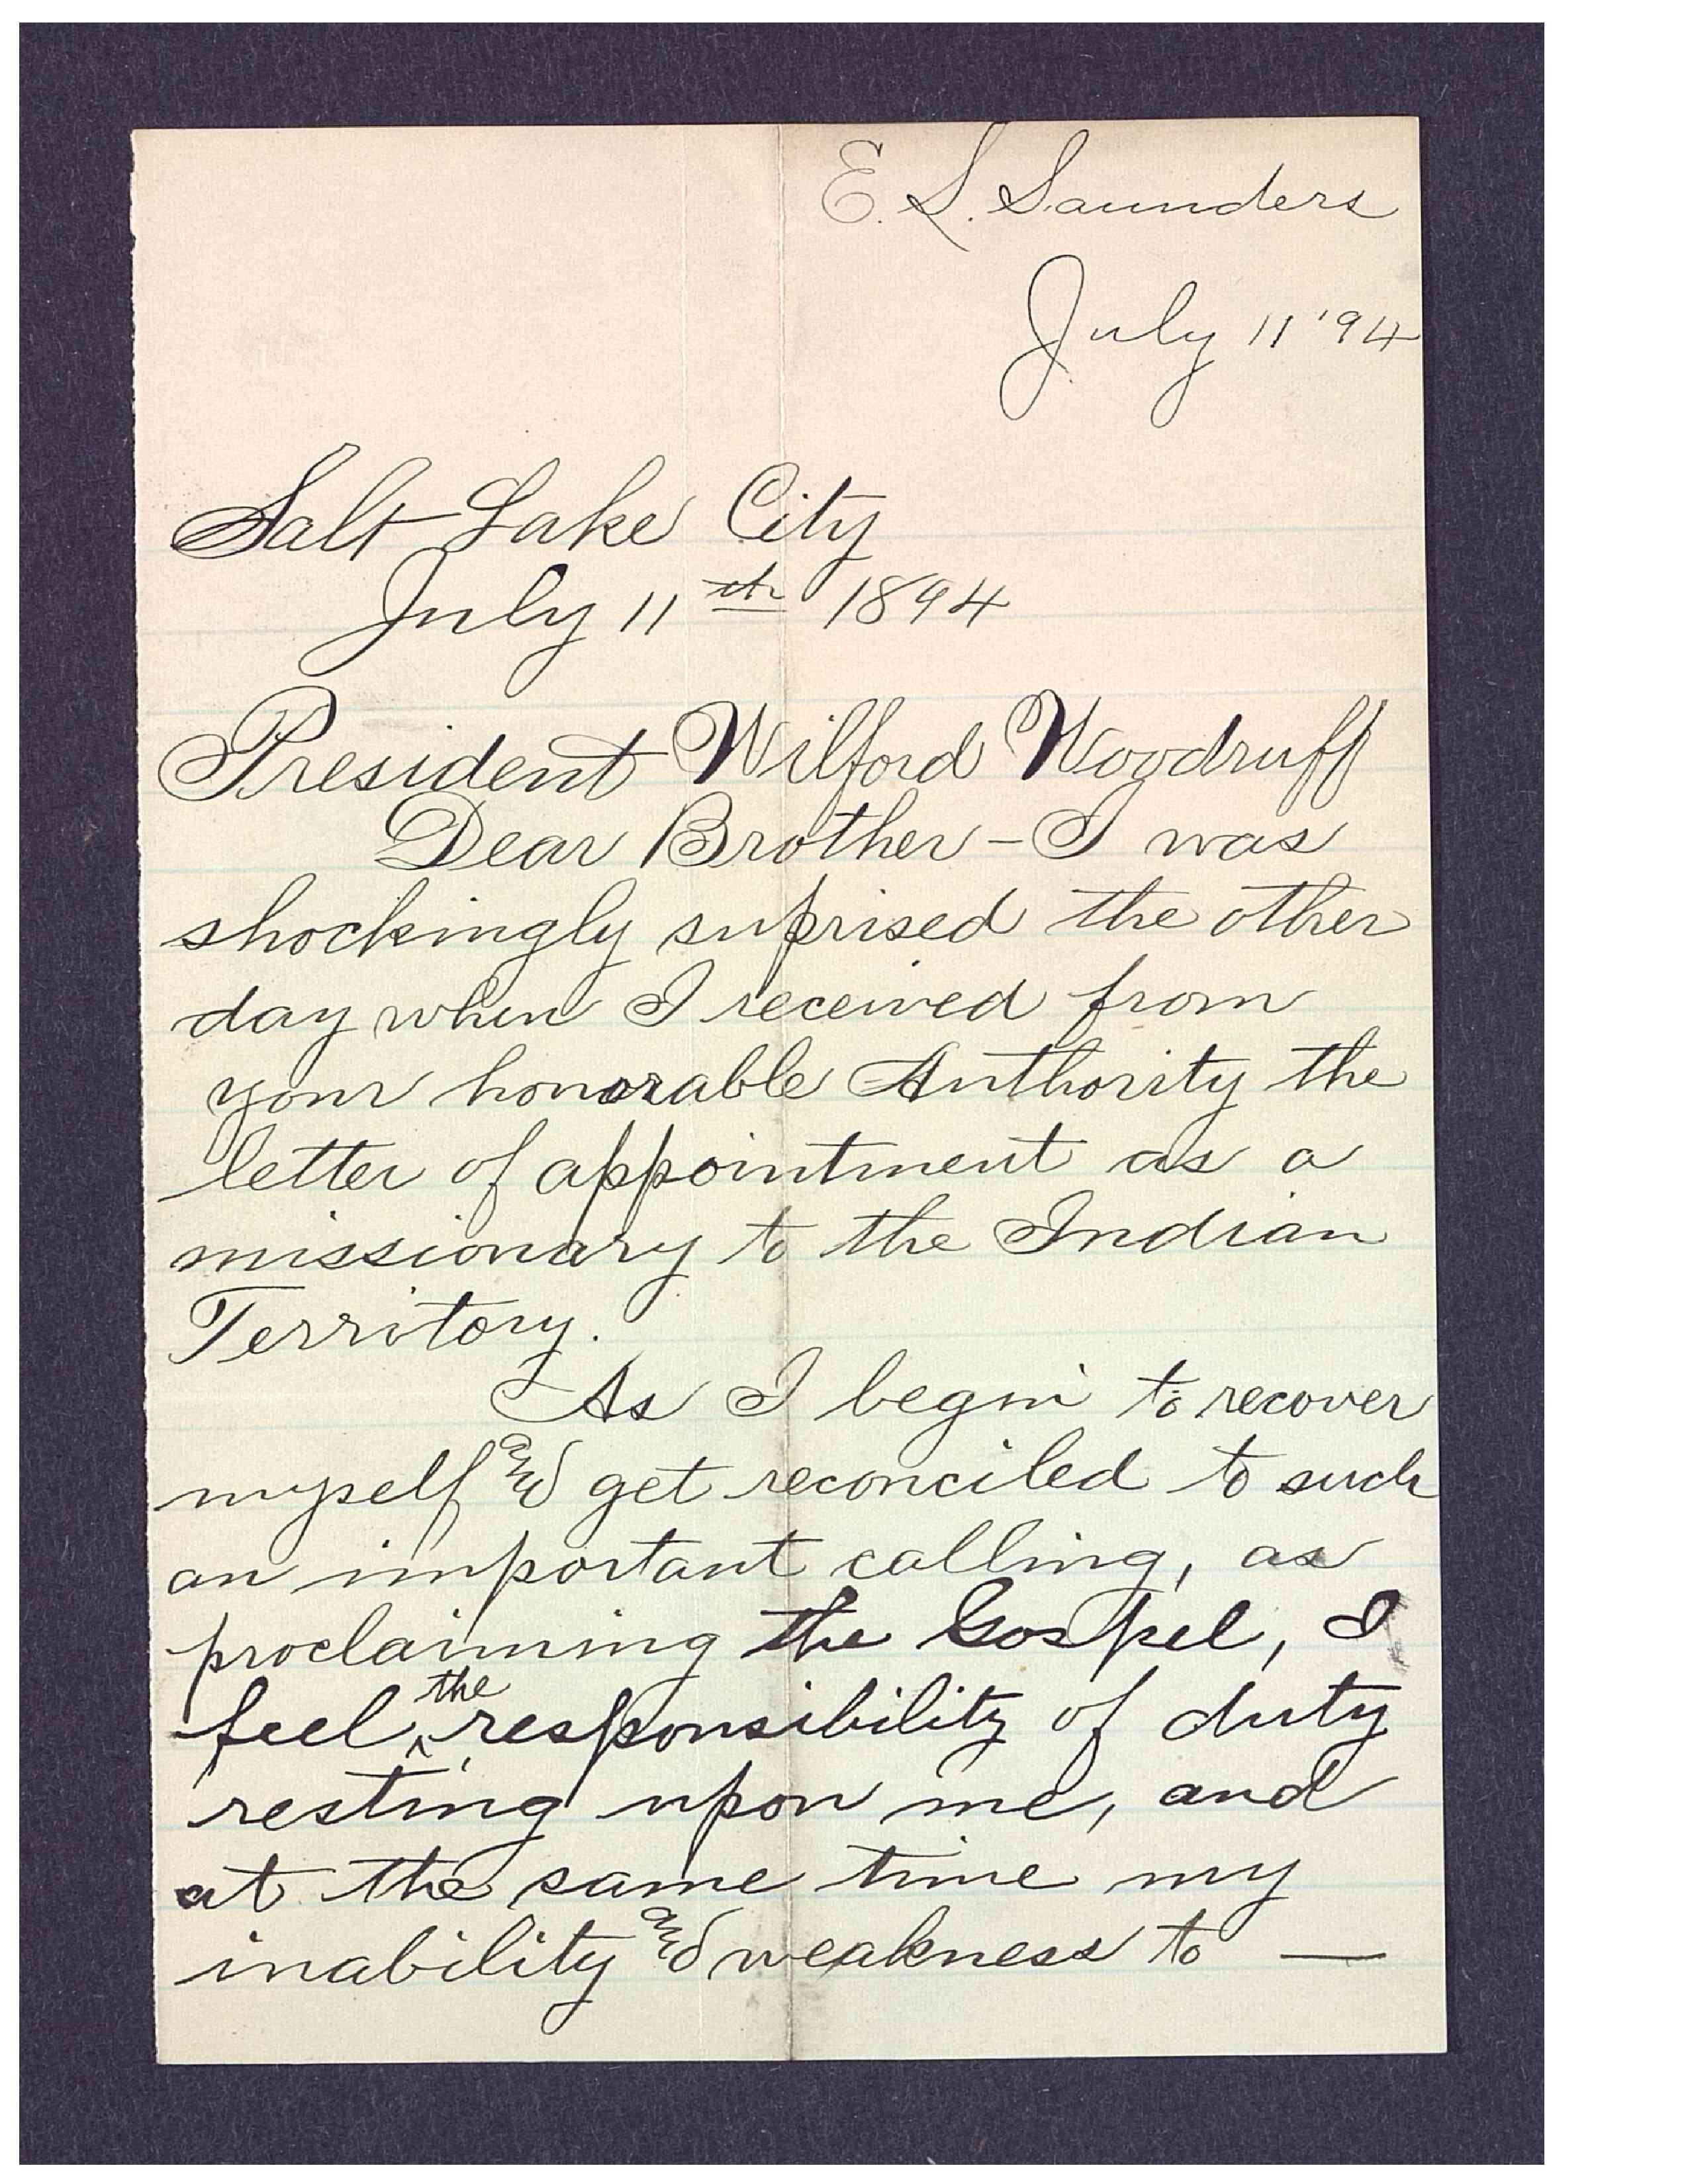 E. L. Saunders
July 11 '94
Salt Lake City
July 11th 1894
President Wilford Woodruff
Dear Brother – I was
shockingly suprised the other
day when I received from
your honorable Authority the
letter of appointment as a
missionary to the Indian
Territory.
As I begin to recover
myself and get reconciled to such
an important calling, as
proclaiming the Gospel, I
feel the responsibility of duty
resting upon me, and
at the same time my
inability and weakness to —